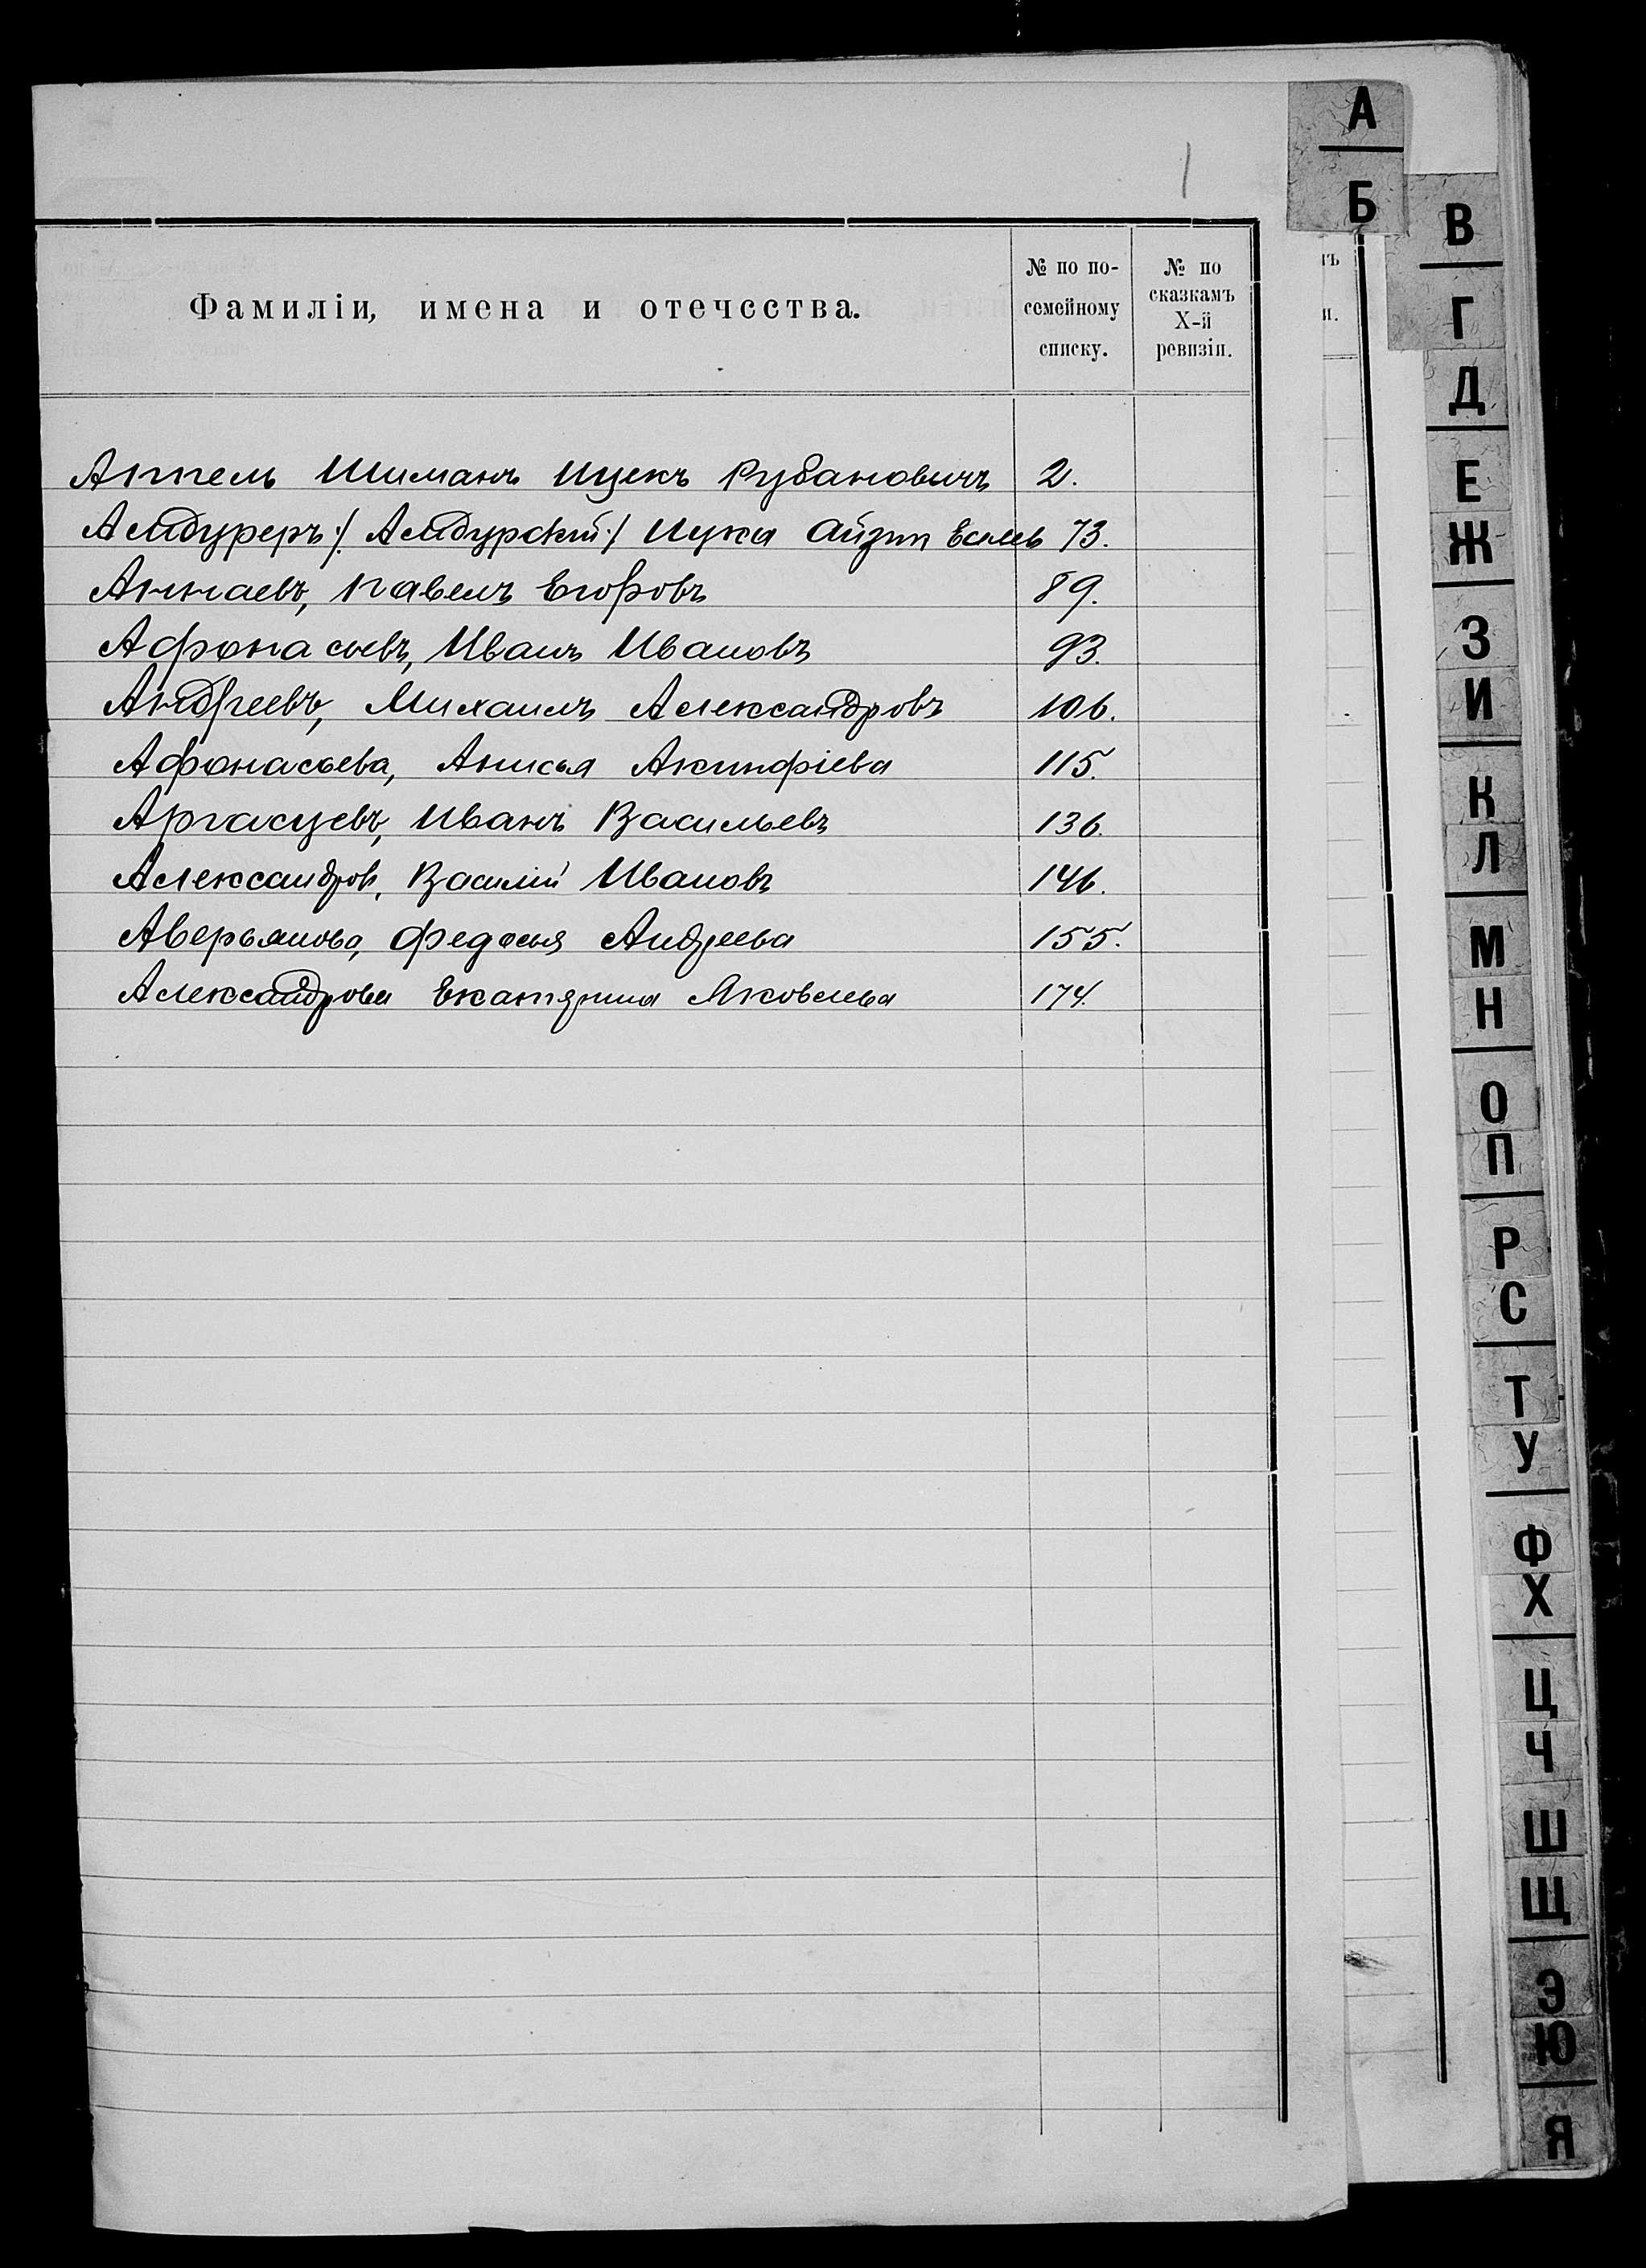 1
Фамиліи, имена и отечества.
№ по по-
семейному
списку.
№ по
сказкамъ
X-й
ревизіи.
Аппель Шиманъ Ицекъ Рубановичъ 2.
Амдуреръ /. Амдурскій ./ Ицка Айзик 73.
Аннаевъ, Павелъ Егоровъ 89.
Афонасьевъ, Иванъ Ивановъ 93.
Андреевъ, Михаилъ Александровъ 106.
Афонасьева, Анисья Акинфіева 115.
Аргасцевъ, Иванъ Васильевъ 136.
Александровъ, Василій Ивановъ 146.
Аверьянова, Федосья Андреева 155.
Александрова Екатерина Яковлева 174.
ъ
и.
А
Б
В
Г
Д
Е
Ж
З
И
К
Л
М
Н
О
П
Р
С
Т
У
Ф
Х
Ц
Ч
Ш
Щ
Э
Ю
Я